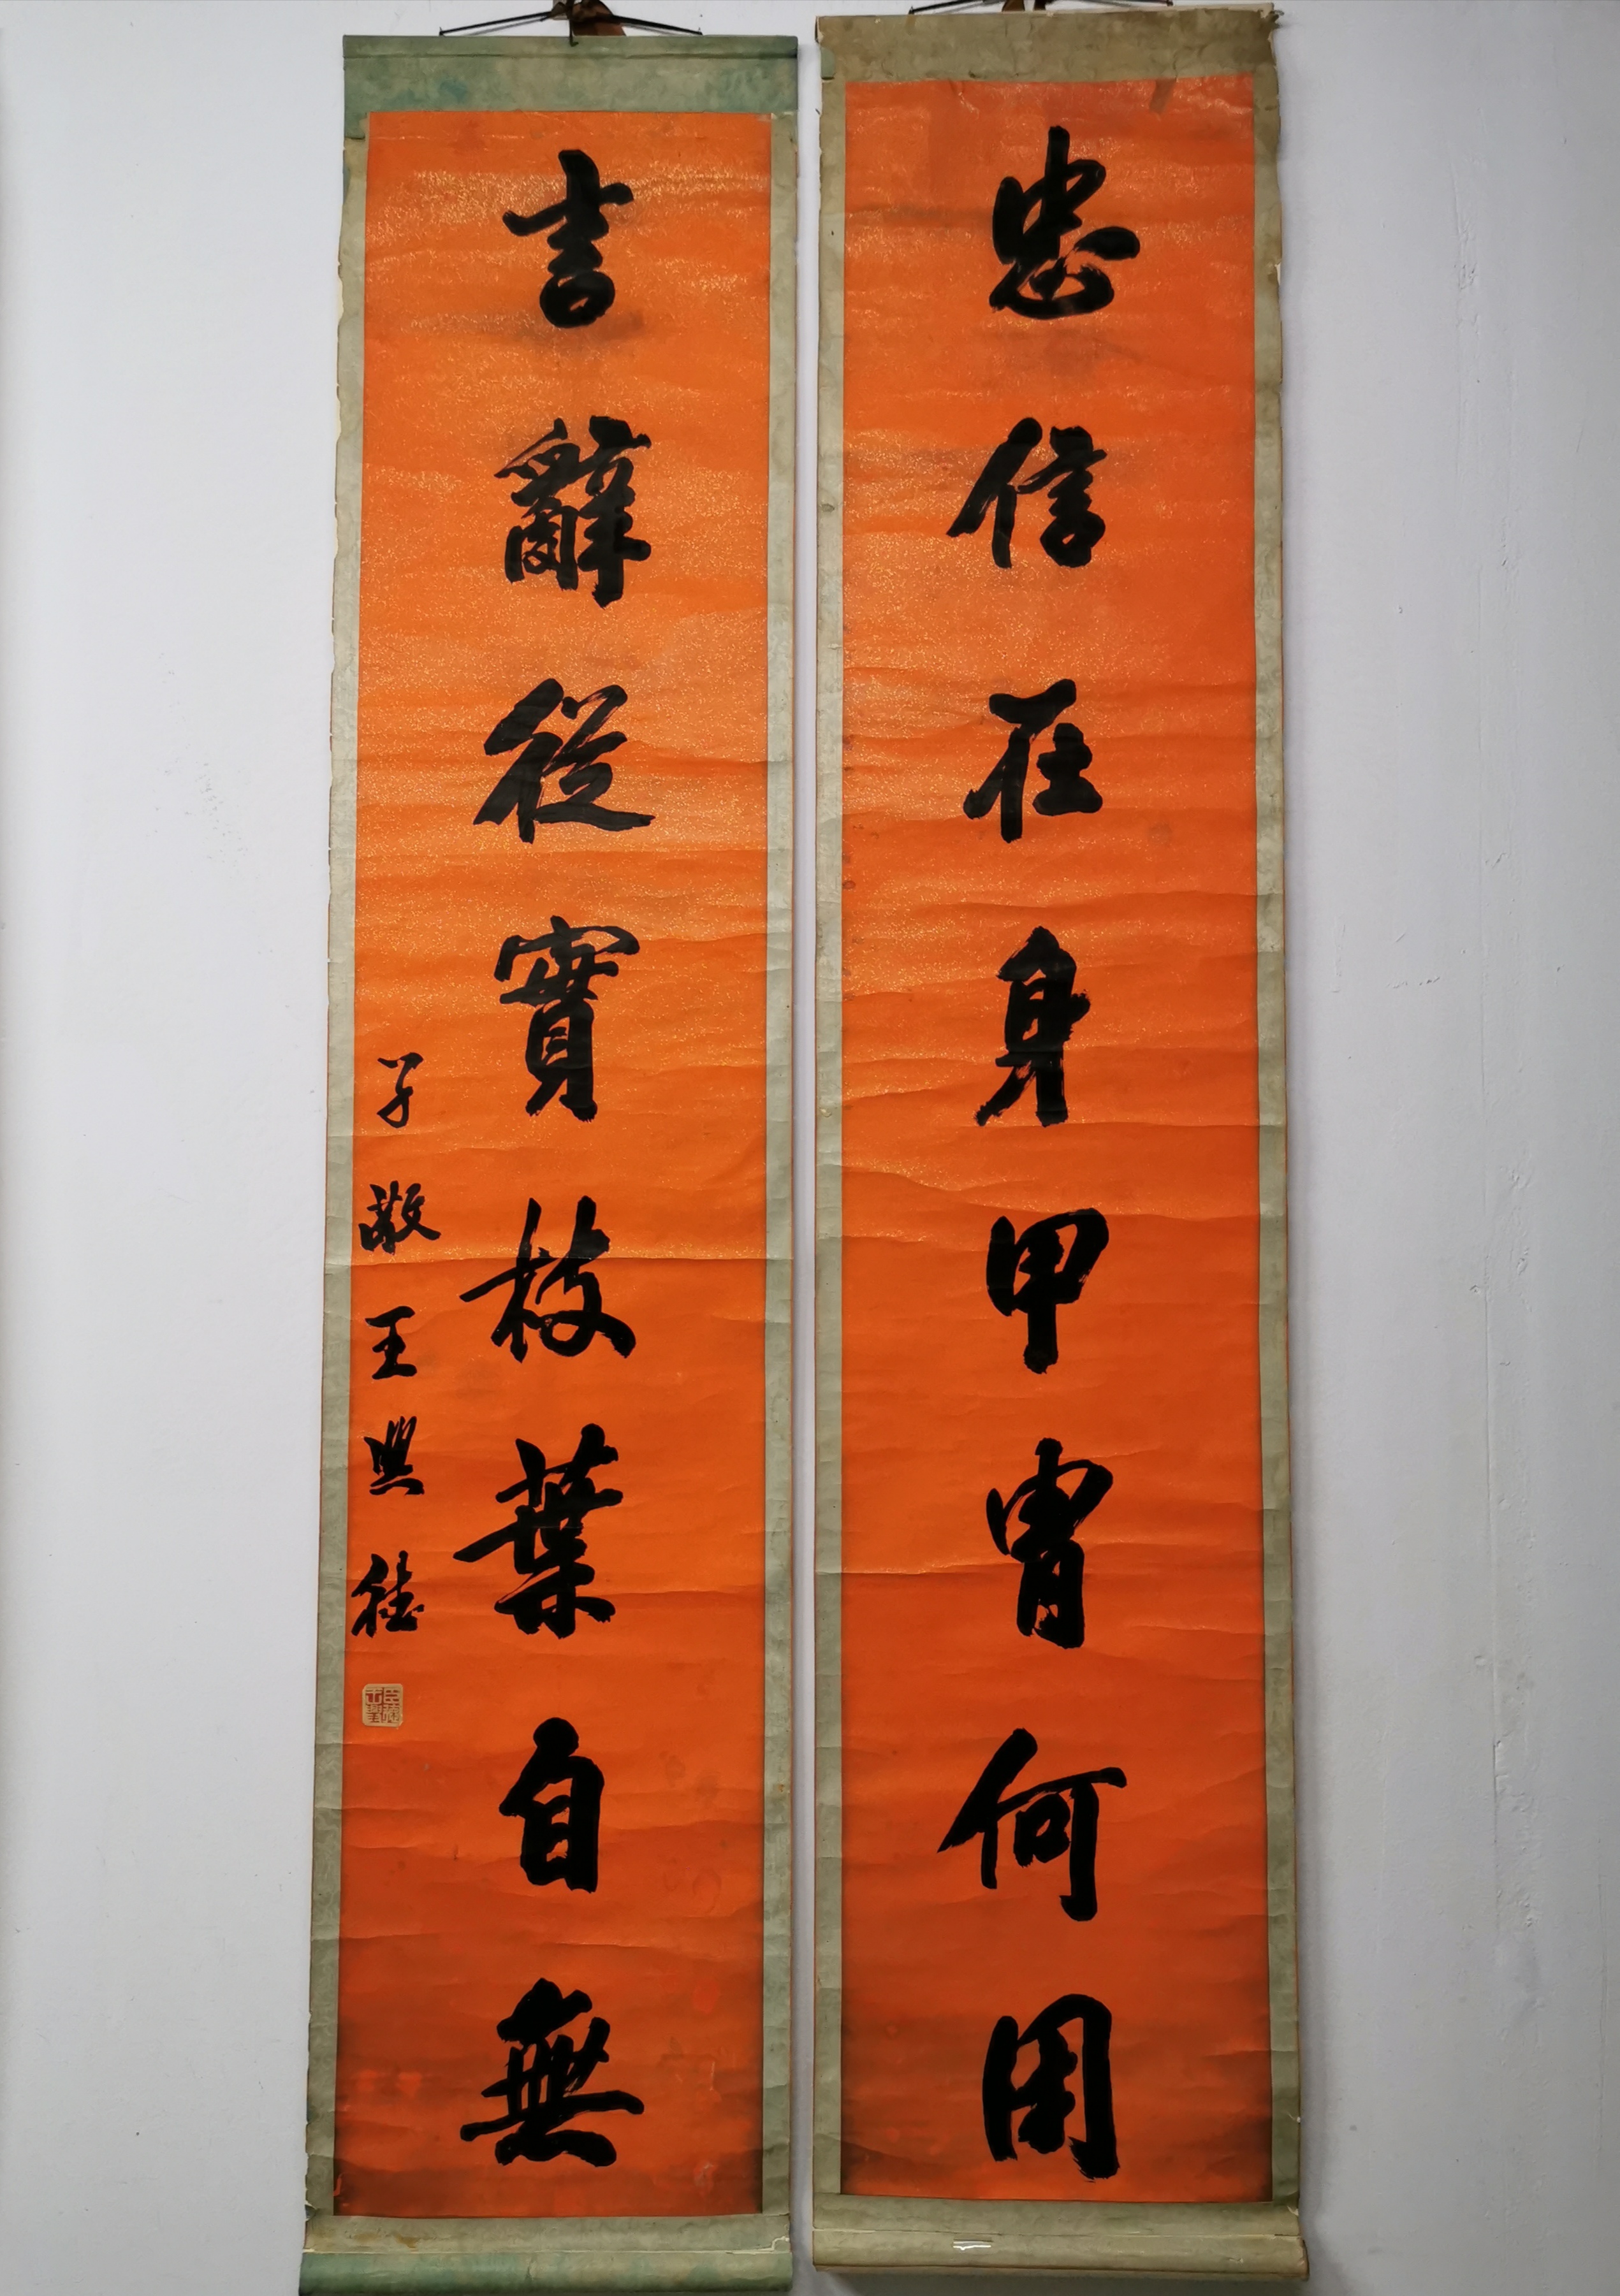 忠信在身甲胄何用
言辭從實枝葉自無
子敬王興德